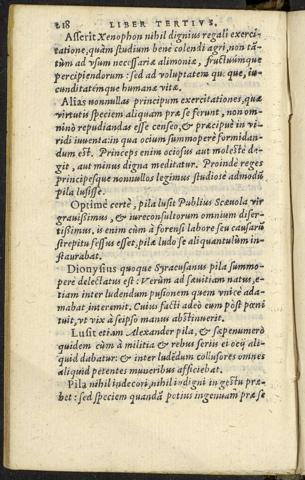 218 LIBER TERTIVS.
Asserit Xenophon nihil dignius regali exerci-
tatione, quàm studium bene colendi agri, non tã-
tùm ad vsum necessariæ alimoniæ, fructuúmque
percipiendorum: sed ad voluptatem quoque, iu-
cunditatémque humanæ vitæ.
Alias nonnullas principum exercitationes, quæ
virtutis speciem aliquam præ se ferunt, non om-
ninò repudiandas esse censeo, & præcipuè in vi-
ridi iuuenta: in qua ocium summopere formidan-
dum est. Princeps enim ociosus aut molestè de-
git, aut minus digna meditatur. Proinde reges
principésque nonnullos legimus studiosè admodũ
pila lusisse.
Optimè certè, pila lusit Publius Scæuola vir
grauissimus, & iureconsultorum omnium diser-
tissimus, is enim cùm à forensi labore seu causarũ
strepitu fessus esset, pilæ ludo se aliquantulùm in-
staurabat.
Dionysius quoque Syracusanus pila summo-
pere delectatus est: Verùm ad sæuitiam natus, e-
tiam inter ludendum pusionem quem vnicè ada-
mabat interemit. Cuius facti adeò eum pòst pœni
tuit, vt vix à seipso manus abstinuerit.
Lusit etiam Alexander pila, & sæpenumerò
quidem cùm à militia & rebus seriis ei ocij ali-
quid dabatur: & inter ludẽdum collusores omnes
aliquid petentes muneribus afficiebat.
Pila nihil indecori, nihil indigni in gestu præ-
bet: sed speciem quandã potius ingenuam præ se